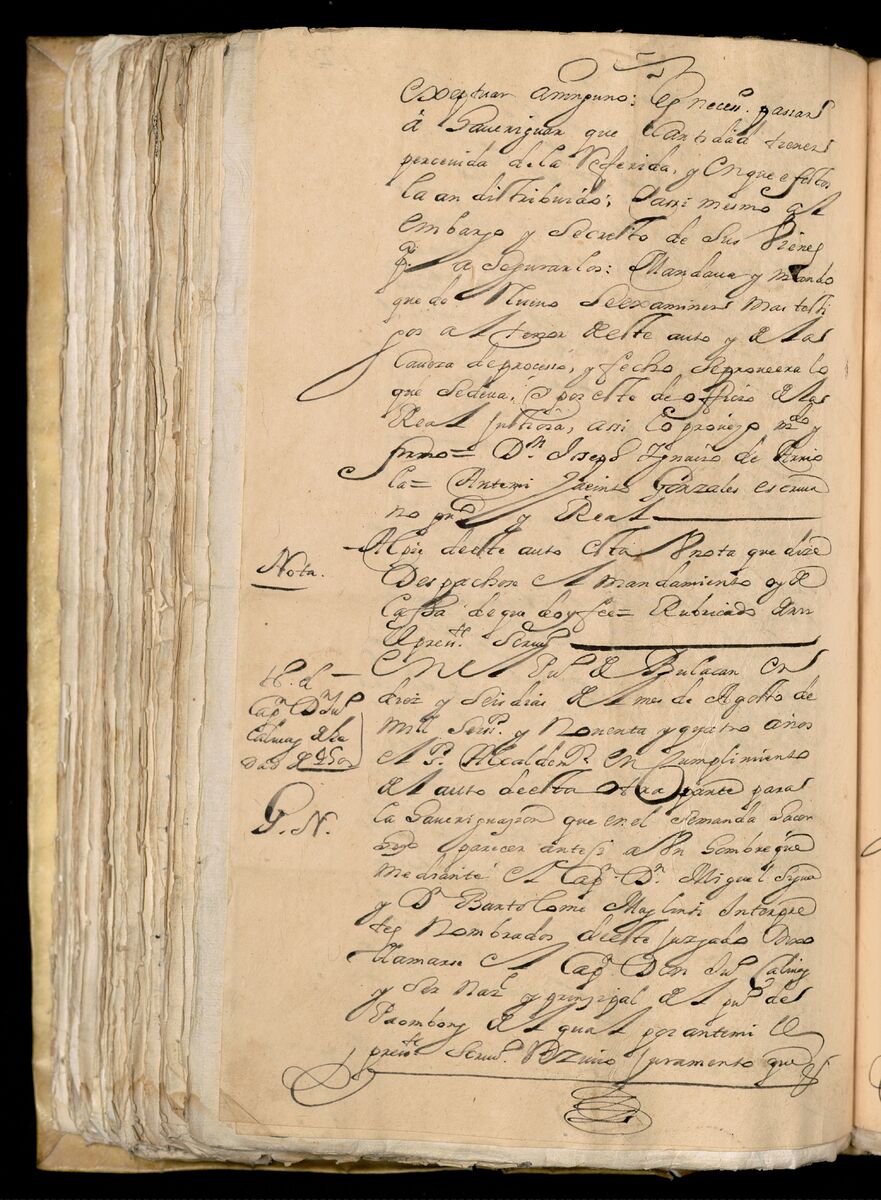 exeptuar aninguno: es necess.o passar
à Haueriguar que Cantidad tienen
perceuida de la Referida, y en que efectos
la an distribuido; Y assi mesmo al
embargo y secresto de sus Vienes
a segurarlos: Mandaua y mando
que de Nueuo se examinen mas testi
gos al tenor deste auto y de la
Caueza de processo, y fecho se proueera lo
que se deua; y por este de officio de la
Real Justicia, assi lo proueyo m.do y
firmo = D.n Joseph Ygnacio de Arrio
la = Antemi Jacinto Gonzales escriua
no pu.co y Real
Nota.
Al pie deste auto esta Vn nota que dize
Despachose el mandamiento oy de la
fha de que doy fee = Rubricado de mi
el press.te Scriu.o
En el Pu.o de Bulacan en
diez y seis dias del mes de Agosto de
mill seis.s y Nouenta y quatro años
el S.r Alcalde m.r en cumplimiento
del auto de esta otra parte para
la Haueriguazion que en el se manda hacer
hizo parecer ante si a Vn hombre que
mediante el Cap.n D.n Miguel
y D.n Bartolome Interpre
tes Nombrados deste Juzgado Dixo
llamarse el Cap.n Don Ju.o
y ser Nat.l y prinzipal del pu.o de
del qual por antemi el
press.te Scriu.o Rzeuio Juramento que
t.o el
Cap.n D.n Ju.o
de he
dad de 50 a.s
G. N.